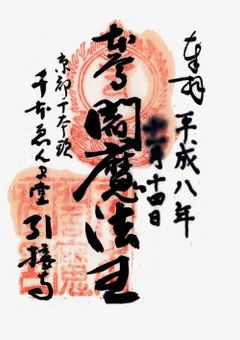 奉拝
平成八年
十一月十四日
本尊
閻魔法王
京都千本頭
千本ゑんま堂
引接寺